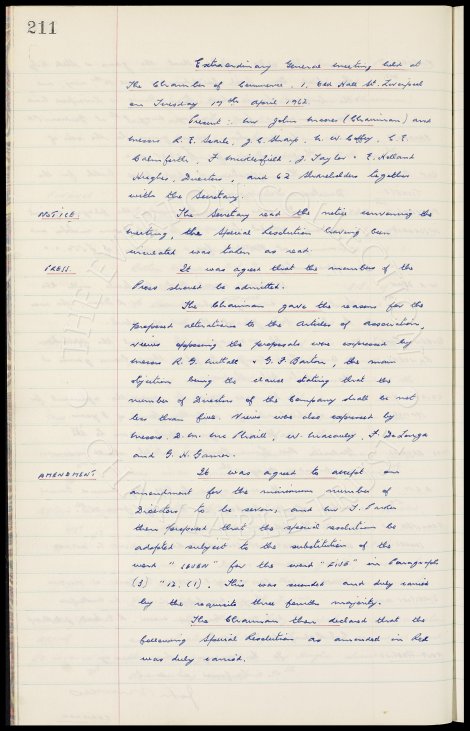 211
Extraordinary General meeting held at
The Chamber of Commerce. 1. Old Hall St. Liverpool
on Tuesday 17th April 1962.
Present: Mr John Moores (Chairman) and
Messrs R. E. Searle, J. C. Sharp, C. E.
Balmforth, F. Micklesfield, J. Taylor & E. Holland
Hughes, Directors, and 62 Shareholders together
with the Secretary.
NOTICE. The Secretary read the notice convening the
meeting, the Special Resolution having been
circulated was taken as read.
PRESS. It was agreed that the members of the
Press should be admitted.
The Chairman gave the reasons for the
proposed alterations to the Articles of Association,
views opposing the proposals were expressed by
Messrs R. G. & G. F. Barton, the main
objection being the clause stating that the
number of Directors of the Company shall be not
less than five. Views were also expressed by
Messrs. D. M. W. Macauley, F.
and G. H. Garner.
AMENDMENT. It was agreed to accept an
amendment for the minimum number of
Directors to be seven, and Mr T. Parker
then proposed that the special resolution be
adopted subject to the substitution of the
word "SEVEN" for the word "FIVE" in Paragraph
(3) "12. (1). This was seconded and duly carried
by the requisite three fourths majority.
The Chairman then declared that the
following Special Resolution as amended in Red
was duly carried.
THE EVERTON COLLECTION